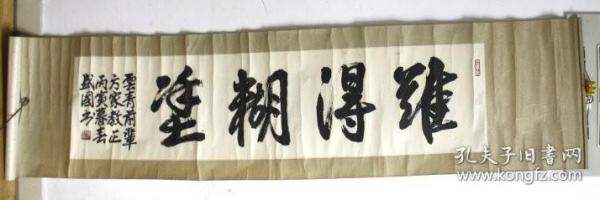 難得糊塗
雲青前輩
方家教正
丙寅春去
盛國书
孔夫子旧书网
www.kongfz.com